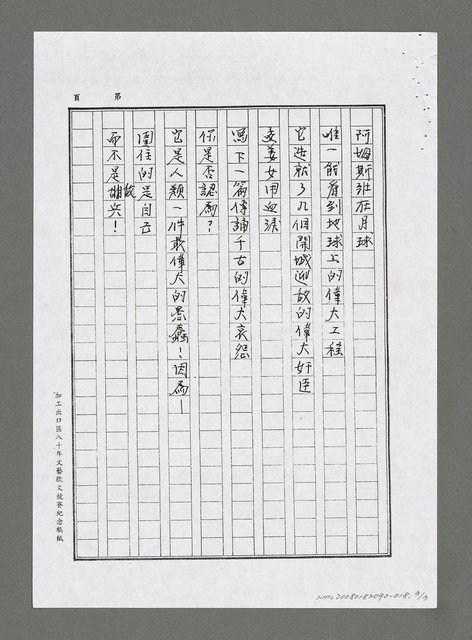 第　頁
阿姆斯壯在月球
唯一能看到地球上的偉大工程
它造就了几個開城迎敵的偉大奸臣
孟姜女用血淚
寫下一篇傳誦千古的偉大哀怨
你是否認為？
它是人類一件最偉大的愚蠢！因為—
圍住的是自己
而不是敵兵！
加工出口區八十年文藝徵文競賽紀念稿紙
NMTL20080182090-018. 3/3